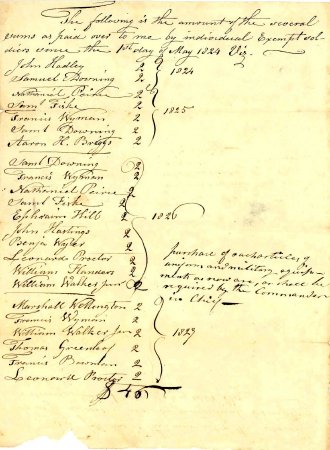 The following is the amount of the several
sums as paid over to me by individual Exempt sol-
diers since the 1st day of May 1824 Viz.
John Hadley 2
Samuel Downing 2 1824
Nathaniel Peirce 2
Saml Fiske 2
Francis Wyman 2 1825
Saml Downing 2
Aaron H. Briggs 2
Saml Downing 2
Francis Wyman 2
Nathaniel Peirce 2
Saml Fiske 2
Ephraim Hill 2 1826
John Hastings 2
Benja 2
Leonard Proctor 2
William Flanders 2
William Walker Junr 2
purchase of such articles of
uniform and military equip-
ments as now are, or shall be
required by the Commander
in Chief
Marshall Wellington 2
Francis Wyman 2
William Walker Jun 2 1827
Thomas Greenleaf 2
Francis Bowman 2
Leonard Proctor 2
$ 46